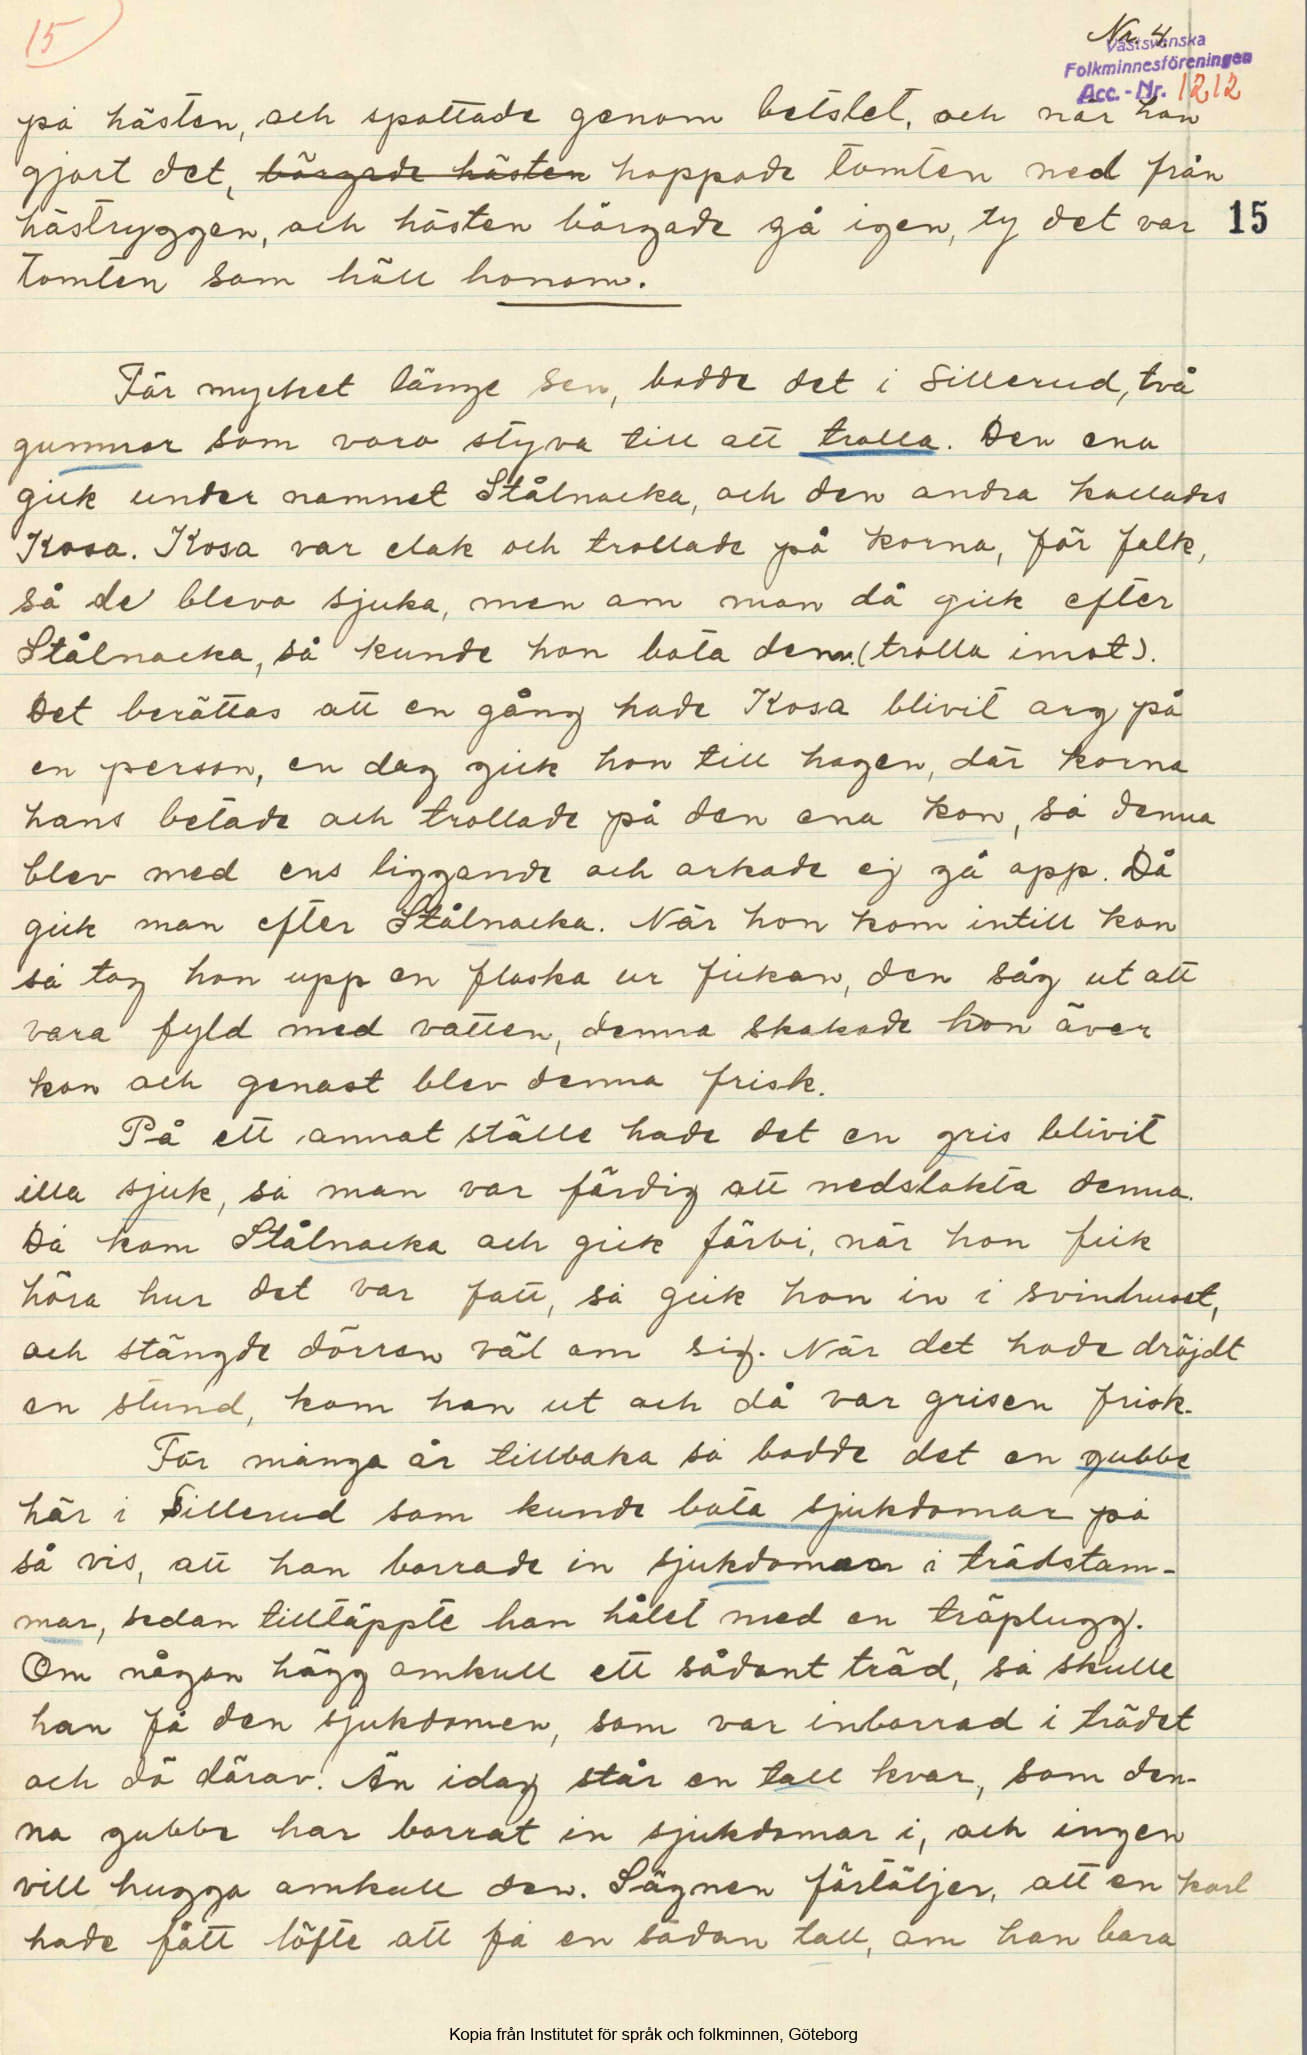 15
Nr. 4
Västsvenska
Folkminnesföreningen
Acc. - Nr. 1212
på hästen, och spottade genom betslet, och när han
gjort det, börgade hästen hoppade tomten ned från
hästryggen, och hästen börgade gå igen, ty det var
15
tomten som höll honom.
För mycket länge sen, bodde det i Sillerud, två
gummor som voro styva till att trolla. Den ena
gick under namnet Stålnacka, och den andra kallades
Kosa. Kosa var elak och trollade på korna, för folk,
så de blevo sjuka, men om man då gick efter
Stålnacka, så kunde hon bota dem. (trolla imot).
Det berättas att en gång hade Kosa blivit arg på
en person, en dag gick hon till hagen, där korna
hans betade och trollade på den ena kon, så denna
blev med ens liggande och orkade ej gå opp. Då
gick man efter Stålnacka. När hon kom intill kon
så tog hon upp en flaska ur fickan, den såg ut att
vara fyld med vatten, denna skakade hon över
kon och genast blev denna frisk.
På ett annat ställe hade det en gris blivit
illa sjuk, så man var färdig att nedslakta denna.
Då kom Stålnacka och gick förbi, när hon fick
höra hur det var fatt, så gick hon in i svinhuset,
och stängde dörren väl om sig. När det hade dröjdt
en stund, kom hon ut och då var grisen frisk.
För många år tillbaka så bodde det en gubbe
här i Sillerud som kunde bota sjukdomar på
så vis, att han borrade in sjukdomar i trädstam-
mar, sedan tilltäppte han hålet med en träplugg.
Om någon högg omkull ett sådant träd, så skulle
han få den sjukdomen, som var inborrad i trädet
och dö därav. Än idag står en tall kvar, som den-
na gubbe har borrat in sjukdomar i, och ingen
vill hugga omkull den. Sägnen förtäljer, att en karl
hade fått löfte att få en sådan tall, om han bara
Kopia från Institutet för språk och folkminnen, Göteborg